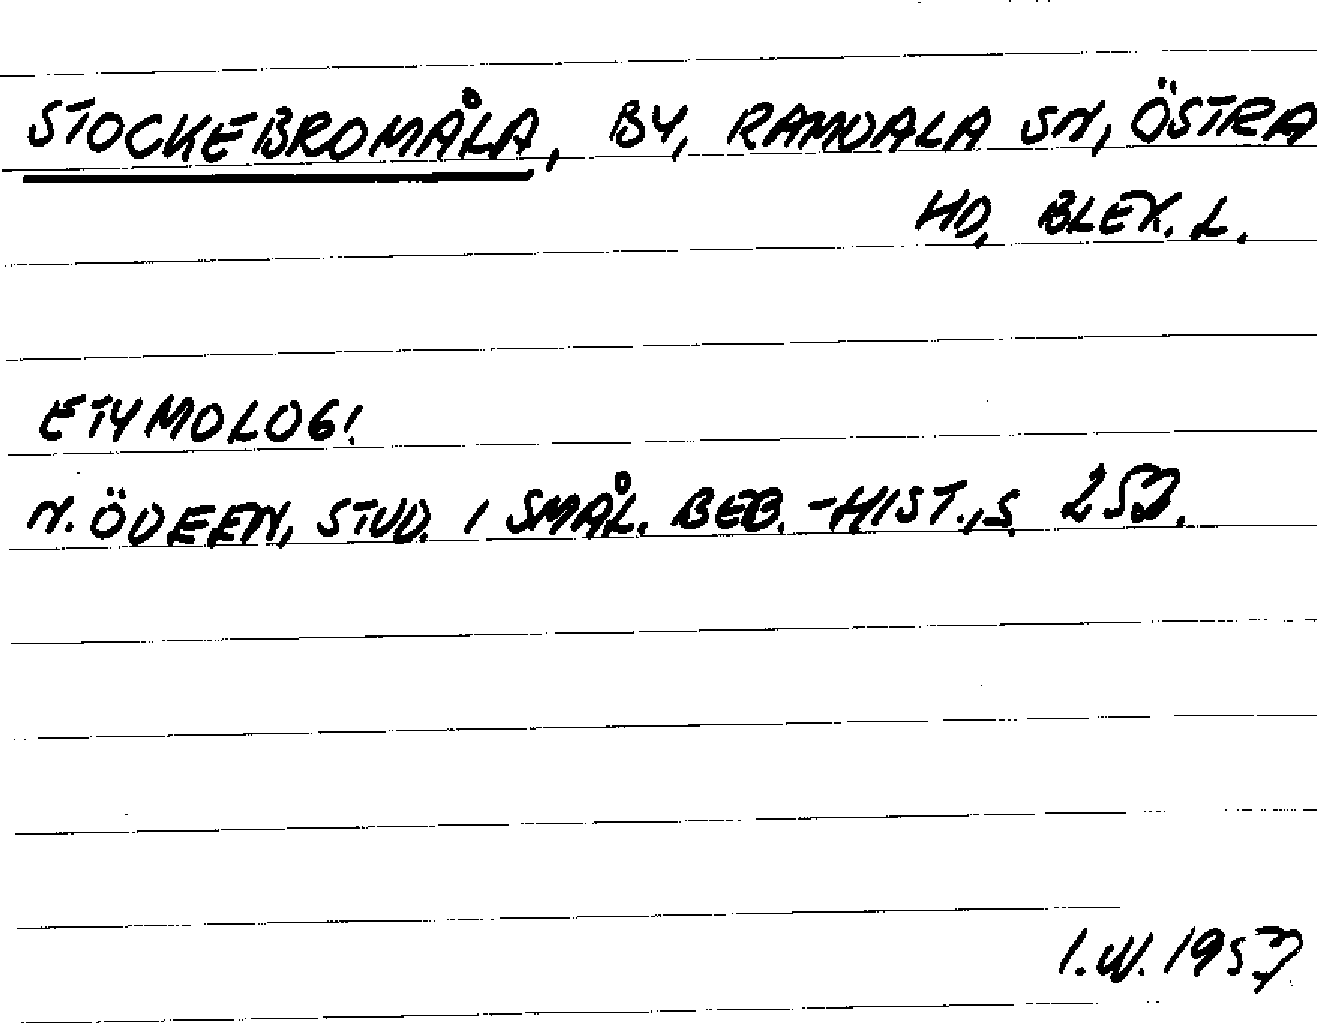 STOCKEBROMÅLA, BY, RAMDALA SN, ÖSTRA
HD, BLEK. L.
ETYMOLOGI
N. ÖDEEN, STUD. I SMÅL. BEB.-HIST., S.
1957